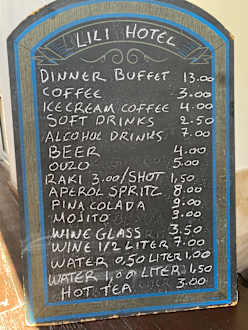 LILI HOTEL
DINNER BUFFET 13.00
COFFEE 3.00
ICECREAM COFFEE 4.00
SOFT DRINKS 2.50
ALCOHOL DRINKS 7.00
BEER 4.00
OUZO 5.00
RAKI 3.00/SHOT 1,50
APEROL SPRITZ 8.00
PINA COLADA 9.00
MOJITO 9.00
WINE GLASS 3.50
WINE 1/2 LITER 7.00
WATER 0,50 LITER 1,00
WATER 1,00 LITER 1,50
HOT TEA 3.00